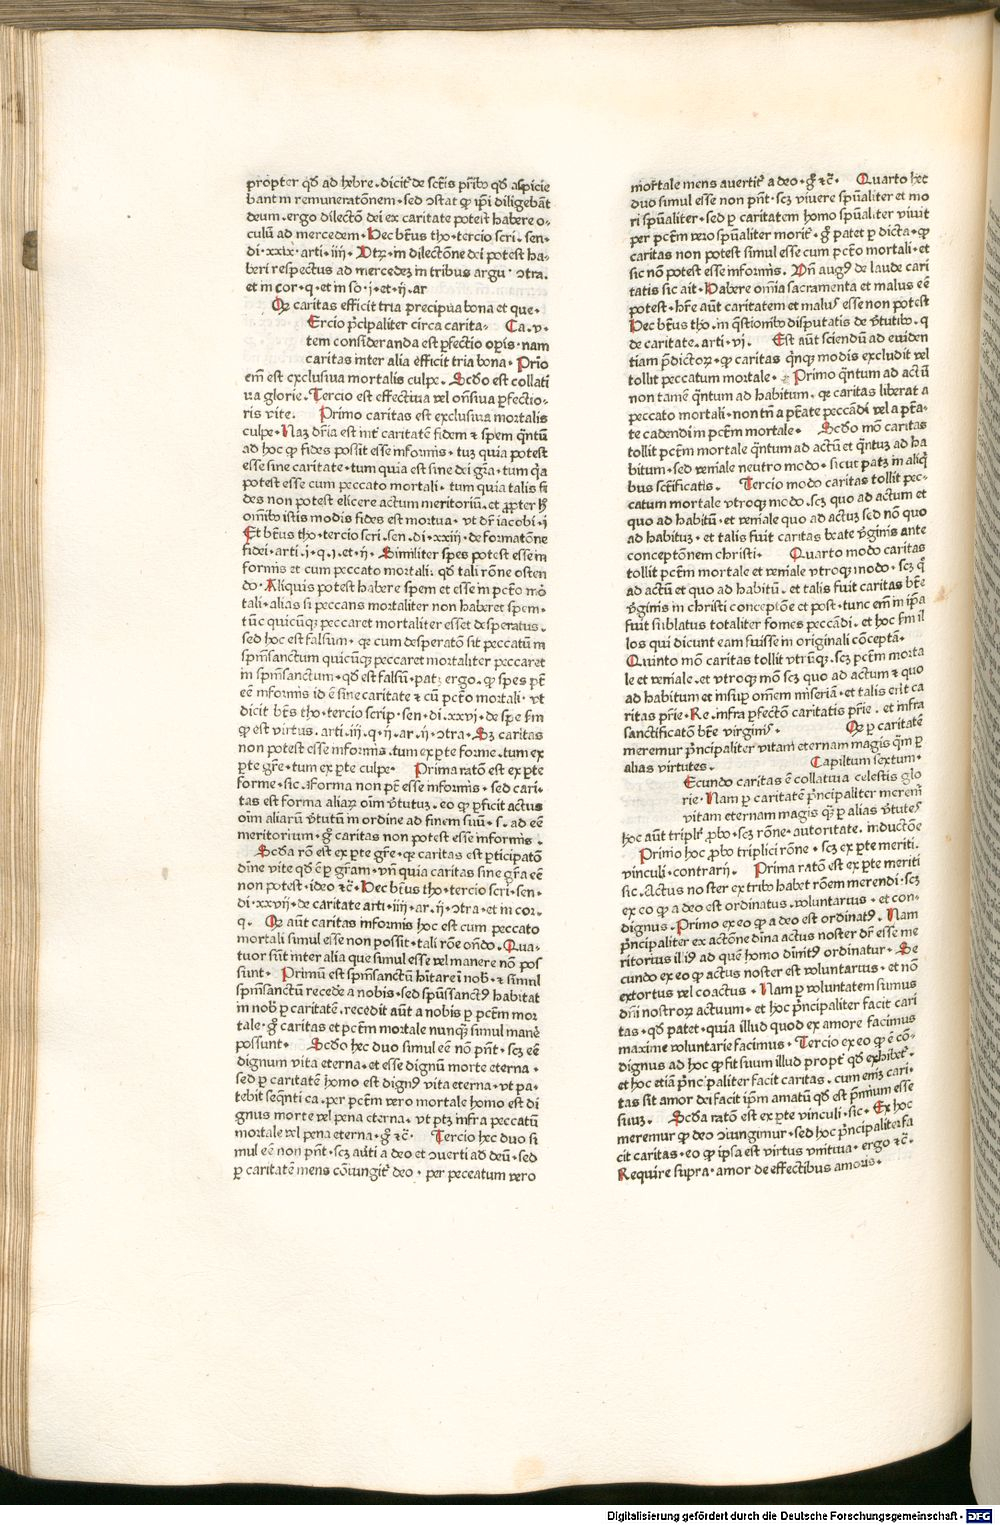 propter qḋ ad hebre. dicit᷑ de sctīs pr̄ibꝰ qḋ aspicie
bant in remuneratōnem · sed ɔstat ꝙ ip̄i diligebāt
deum. ergo dilectō dei ex caritate potest habere o-
culū ad mercedem · Hec btūs tho · tercio scri. sen·
di · xxix · arti · iiij · Utꝝ · in dilectōne dei potest ha-
beri respectus ad mercedeꝫ in tribus argu · ɔtra.
et in cor · q · et in so · j · et · ij. ar
Qꝫ caritas efficit tria precipua bona et que·
Ercio pͥcipaliter circa carita- Ca. v ·
tem consideranda est pfectio oꝑis · nam
caritas inter alia efficit tria bona · Prīo
em̄ est exclusiua mortalis culpe. Scḋo est collati
ua glorie. Tercio est effectiua vel on̄siua ꝑfectio-
ris vite. Primo caritas est exclusiua mortalis
culpe · Naꝫ dr̄ia est int᷑ caritatē fidem ⁊ spem qͣntū
ad hoc ꝙ fides possit esse informis · tuꝫ quia potest
esse sine caritate · tum quia est sine dei gr̄a · tum qͥa
potest esse cum peccato mortali · tum quia talis fi
des non potest elicere actum meritoriū. et ꝓpter hͦ
om̄ibꝰ istis modis fides est mortua · vt dr̄ iacobi · ij
Et btūs tho · tercio scri. sen. di · xxiij · de formatōne
fidei · arti. j · q. j. et · ij. Similiter spes potest esse in
formis et cum peccato mortali: qḋ tali rōne osten
do · Aliquis potest habere spem et esse in pctō mo
tali · alias si peccans mortaliter non haberet spem ·
tūc quicūqꝫ peccaret mortaliter esset desperatus.
sed hoc est falsum · qꝫ cum desperatō sit peccatū in
spm̄sanctum quicūqꝫ peccaret mortaliter peccaret
in spm̄sanctum · qḋ est falsū · patꝫ ergo. ꝙ spes pt̄
eē informis id ē sine caritate ⁊ cū pctō mortali · vt
dicit btūs tho · tercio scrip · sen · di. xxvj · de spe ẜm
ꝙ est virtus. arti. iij. q · ij · ar · ij · ɔtra · Sꝫ caritas
non potest esse informis · tum ex ꝑte forme · tum ex
ꝑte gr̄e · tum ex ꝑte culpe · Prima ratō est ex ꝑte
forme · sic · Forma non pt̄ esse informis · sed cari-
tas est forma aliaꝝ oīm v̄tutuꝫ. eo ꝙ ꝑficit actus
oīm aliarū v̄tutū in ordine ad finem suū · s. ad eē
meritorium · gͦ caritas non potest esse informis.
Scḋa rō est ex ꝑte gr̄e · qꝫ caritas est ꝑticipatō
dīne vite qḋ ē ꝑ gr̄am · vn̄ quia caritas sine gr̄a eē
non potest · ideo ⁊c̄ · Hec btūs tho · tercio scri · sen ·
di · xxvij · de caritate arti · iiij · ar. ij · ɔtra · et in cor.
q. Qꝫ aūt caritas informis hoc est cum peccato
mortali simul esse non possit · tali rōne on̄do. Qua-
tuor sūt inter alia que simul esse vel manere nō pos
sunt · Primū est spm̄sanctū h̄itare ī nob̄ · ⁊ simul
spm̄sanctū recede a nobis · sed spūssanctꝰ habitat
in nob̄ ꝑ caritatē. recedit aūt a nobis ꝑ pctm̄ mor
tale · gͦ caritas et pctm̄ mortale nunqꝫ simul manē
possunt · Scḋo hec duo simul eē nō pn̄t · scꝫ eē
dignum vita eterna · et esse dignū morte eterna ·
sed ꝑ caritatē homo est dignꝰ vita eterna · vt pa-
tebit seqn̄ti ca. per pctm̄ vero mortale homo est di
gnus morte vel pena eterna · vt ptꝫ infra peccatū
mortale vel pena eterna · gͦ ⁊c̄ · Tercio hec duo si
mul eē non pn̄t · scꝫ aūti a deo et ɔuerti ad deū · sed
ꝑ caritatē mens cōiungit᷑ deo · per peccatum vero
mortale mens auertit᷑ a deo · gͦ ⁊c̄ · Quarto hec
duo simul esse non pn̄t · scꝫ viuere spūaliter et mo
ri spūaliter · sed ꝑ caritatem homo spūaliter viuit
per pctm̄ vero spūaliter morit᷑ · gͦ patet ꝑ dicta · ꝙ
caritas non potest simul esse cum pctō mortali · et
sic nō potest esse informis. Vn̄ augꝰ de laude cari
tatis sic ait · Habere om̄ia sacramenta et malus eē
potest · hr̄e aūt caritatem et malus esse non potest
Hec btūs tho. in qͣstionibꝰ disputatis de v̄tutibꝰ. q
de caritate. arti · vj. Est aūt sciendū ad euiden
tiam pͣdictoꝝ · ꝙ caritas qͥnqꝫ modis excludit vel
tollit peccatum mortale · Primo qͣntum ad actū
non tamē qͣntum ad habitum. qꝫ caritas liberat a
peccato mortali · non tn̄ a ptāte peccādi vel a ptā-
te cadendi in pctm̄ mortale · Scḋo mō caritas
tollit pctm̄ mortale qͣntum ad actū et qͣntuꝫ ad ha
bitum · sed veniale neutro modo · sicut patꝫ in aliqͥ
bus sctīficatis. Tercio modo caritas tollit pec-
catum mortale vtroqꝫ modo · scꝫ quo ad actum et
quo ad habitū · et veniale quo ad actuꝫ sed nō quo
ad habituꝫ · et talis fuit caritas beate v̄ginis ante
conceptōnem christi · Quarto modo caritas
tollit pctm̄ mortale et veniale vtroqꝫ modo · scꝫ qͦ
ad actū et quo ad habitū · et talis fuit caritas btē
v̄ginis in christi conceptōe et post · tunc em̄ in ip̄a
fuit sublatus totaliter fomes peccādi · et hoc ẜm il
los qui dicunt eam fuisse in originali cōceptā ·
Quinto mō caritas tollit vtrūqꝫ. scꝫ pctm̄ morta
le et veniale. et vtroqꝫ mō scꝫ quo ad actum ⁊ quo
ad habitum et insuꝑ om̄em miseriā · et talis erit ca
ritas pr̄ie · Re. infra ꝑfectō caritatis pr̄ie. et infra
sanctificatō btē virginis · Qꝫ ꝑ caritatē
meremur pͥncipaliter vitam eternam magis qͣm ꝑ
alias virtutes. Capitlum sextum ·
Ecundo caritas ē collatiua celestis glo
rie · Nam ꝑ caritatē pͥncipaliter meremͬ
vitam eternam magis qͣꝫ ꝑ alias v̄tutes
hoc aūt triplr̄ ꝓbo · scꝫ rōne · autoritate. inductōe
Primo hoc ꝓbo triplici rōne · scꝫ ex ꝑte meriti.
vinculi · contrarij. Prima ratō est ex ꝑte meriti
sic. Actus noster ex tribꝰ habet rōem merendi · scꝫ
ex eo ꝙ a deo est ordinatus. voluntarius · et con-
dignus. Primo ex eo ꝙ a deo est ordinatꝰ. Nam
pͥncipaliter ex actōne dīna actus noster dr̄ esse me
ritorius illiꝰ ad quē homo dīnitꝰ ordinatur · Se
cundo ex eo ꝙ actus noster est voluntarius · et nō
extortus vel coactus · Nam ꝑ voluntatem sumus
dn̄i nostroꝝ actuum · et hoc pͥncipaliter facit cari
tas · qḋ patet · quia illud quod ex amore facimus
maxime voluntarie facimus · Tercio ex eo ꝙ ē cō-
dignus ad hoc ꝙ fit suum illud propt᷑ qḋ exhibet᷑ ·
et hoc etiā pͥncipaliter facit caritas. cum eniꝫ cari-
tas sit amor dei facit ip̄m amatū qḋ est pͥmium esse
suuꝫ. Scḋa ratō est ex ꝑte vinculi · sic · Ex hoc
meremur ꝙ deo ɔiungimur · sed hoc pͥncipaliter fa
cit caritas · eo ꝙ ipsa est virtus vnitiua · ergo ⁊c̄ ·
Require supra · amor de effectibus amoris ·
Digitalisierung gefördert durch die Deutsche Forschungsgemeinschaft - DFG